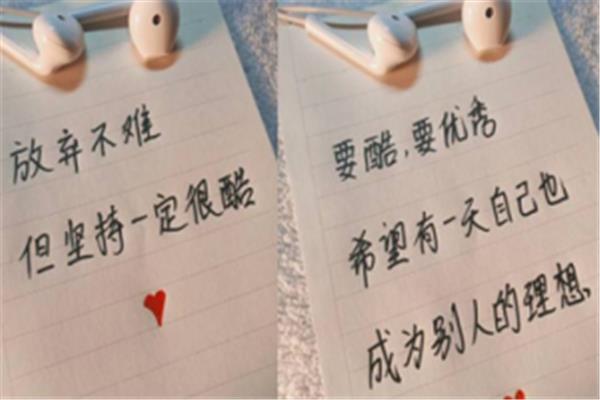 放弃不难
但坚持一定很酷
要酷,要优秀
希望有一天自己也
成为别人的理想、